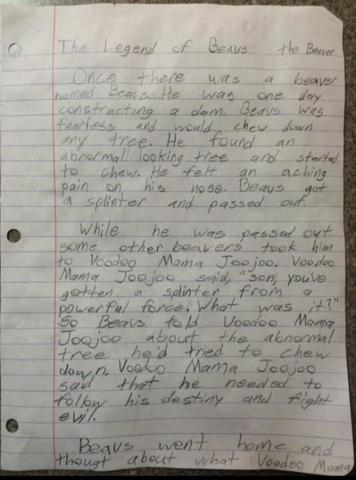 The Legend of Beavs the Beaver
Once there was a beaver
named Beavs. He was one day
constructing a dam. Beavs was
fearless and would chew down
any tree. He found an
abnormal looking tree and started
to chew. He felt an aching
pain on his nose. Beavs got
a splinter and passed out.
While he was passed out
some other beavers took him
to Voodoo Mama Joojoo. Voodoo
Mama Joojoo said, "son, you've
gotten a splinter from a
powerful force. What was it?"
So Beavs told Voodoo Mama
Joojoo about the abnormal
tree he'd tried to chew
down. Voodoo Mama Joojoo
said that he needed to
follow his destiny and fight
evil.
Beavs went home and
thougt about what Voodoo Mama